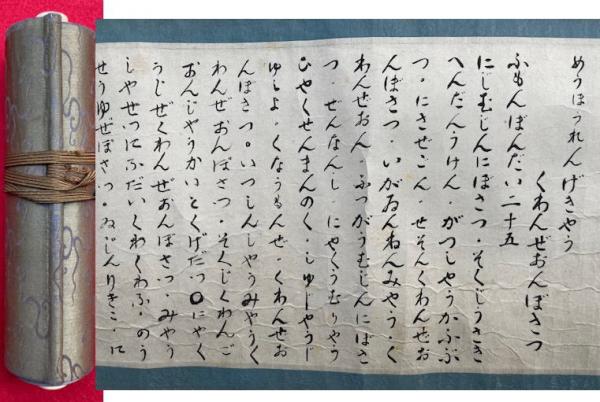 めうほうれんげきやう
くわんぜおんぼさつ
ふもんぼんだい二十五
にじむじんにぼさつ・そくじうさき
へんだんうけん・がつしやうかふぶ
つ・にさぜごん・せそんくわんせお
んぼさつ・いがゐんねんみやう・く
わんせおん・ふつがうむじんにぼさ
つ・ぜんなんし・にやくうむりやう
ひやくせんまんのく・しゆじやうじ
ゆしよ・くなうもんぜ くわんせお
んぼさつ。いつしんしやうみやうく
わんぜおんぼさつ・そくじくわんご
おんじやうかいとくげだつ〇にやく
うじぜくわんぜおんぼさつ・みやう
しやせつにふだいくわくわふ・のう
せうゆぜぼさつ・ゐじんりきこ・に